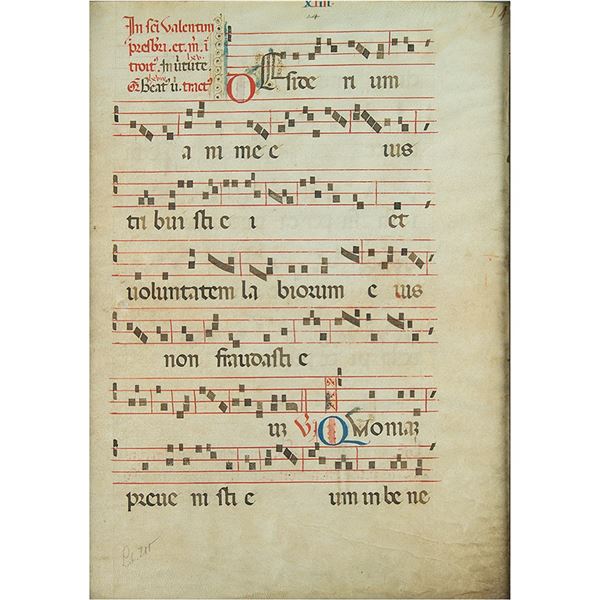 XIIII
In sci Valentini
presbri. et. m. i
troit. In uirtute.
Beat u. tract
DEside ri um
a ni me e ius
tri bui sti e i et
uoluntatem la biorum e ius
non fraudasti e
um V. QMoniaz
preue ni sti e um in be ne